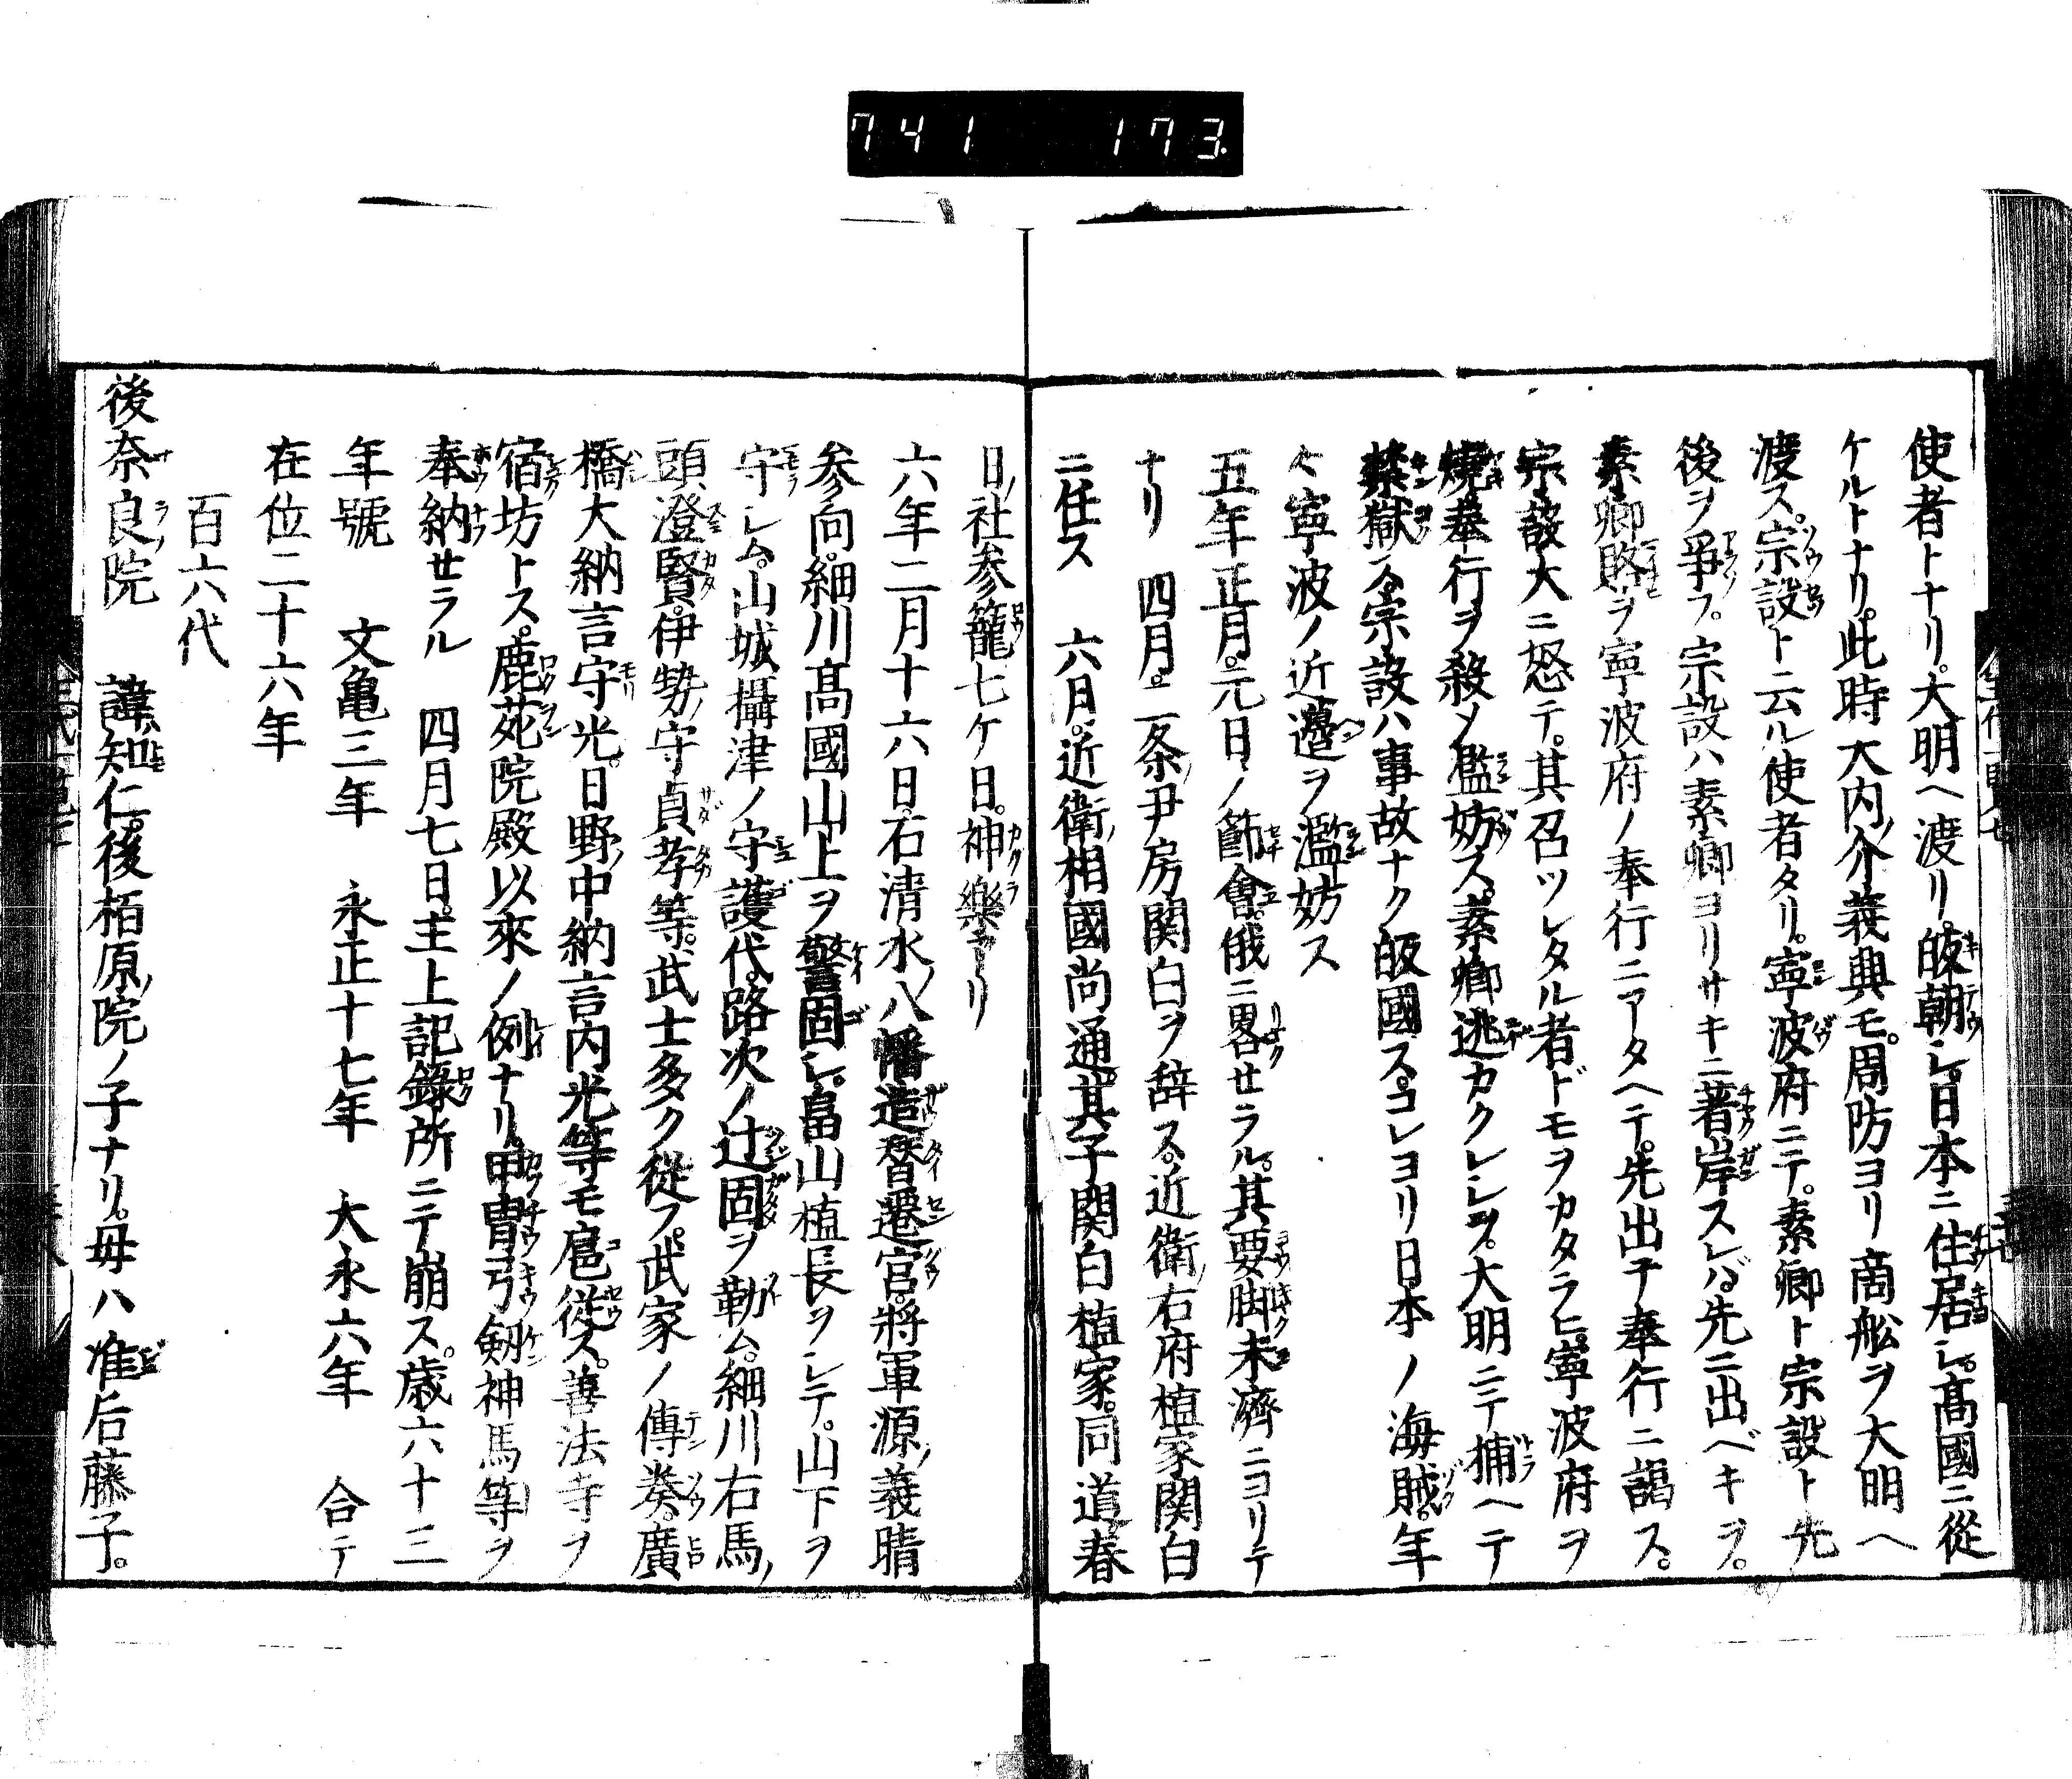 741 173
使者トナリ。大明ヘ渡リ。皈朝シ。日本ニ住居シ。髙國ニ從
ケルトナリ。此時大内ノ介義興モ。周防ヨリ商舩ヲ大明ヘ
渡ス。宗設ト云ル使者タリ。寧波府ニテ。素卿ト宗設ト先
後ヲ爭フ。宗設ハ素卿ヨリサキニ著岸スレバ。先ニ出ベキヲ。
素卿賂ヲ寧波府ノ奉行ニアタヘテ。先出テ奉行ニ謁ス。
宗設大ニ怒テ。其召ツレタル者ドモヲカタラヒ。寧波府ヲ
燒。奉行ヲ殺メ濫妨ス。素卿逃カクレシヲ。大明ニテ捕ヘテ
禁獄ス。宗設ハ事故ナク皈國ス。コレヨリ日本ノ海賊。年
々寧波ノ近邊ヲ濫妨ス
五年正月。元日ノ節會。俄ニ畧セラル。其要脚未濟ニヨリテ
ナリ 四月。二条ノ尹房関白ヲ辞ス。近衛ノ右府植家関白
ニ任ス 六月。近衛ノ相國尚通。其子関白植家。同道春
日ノ社参籠七ケ日。神樂アリ
六年二月十六日。石清水ノ八幡造替遷宮。將軍源ノ義晴
参向。細川髙國山上ヲ警固シ。畠山植長ヲシテ。山下ヲ
守シム。山城攝津ノ守護代。路次ノ辻固ヲ勤ム。細川右馬ノ
頭澄賢。伊勢ノ守貞孝等。武士多ク從フ。武家ノ傳奏。廣
橋大納言守光。日野ノ中納言内光等モ扈從ス。善法寺ヲ
宿坊トス。鹿苑院殿以來ノ例ナリ。甲冑弓劔神馬等ヲ
奉納セラル 四月七日。主上記録所ニテ崩ス。歳六十三
年號 文亀三年 永正十七年 大永六年 合テ
在位二十六年
百六代
後奈良院 諱知仁。後栢原ノ院ノ子ナリ。母ハ准后藤子。